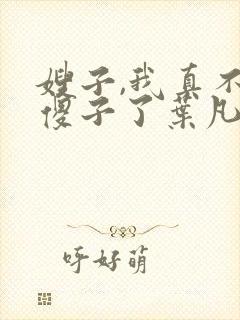 嫂子,我真不
傻子了葉凡
呼好萌